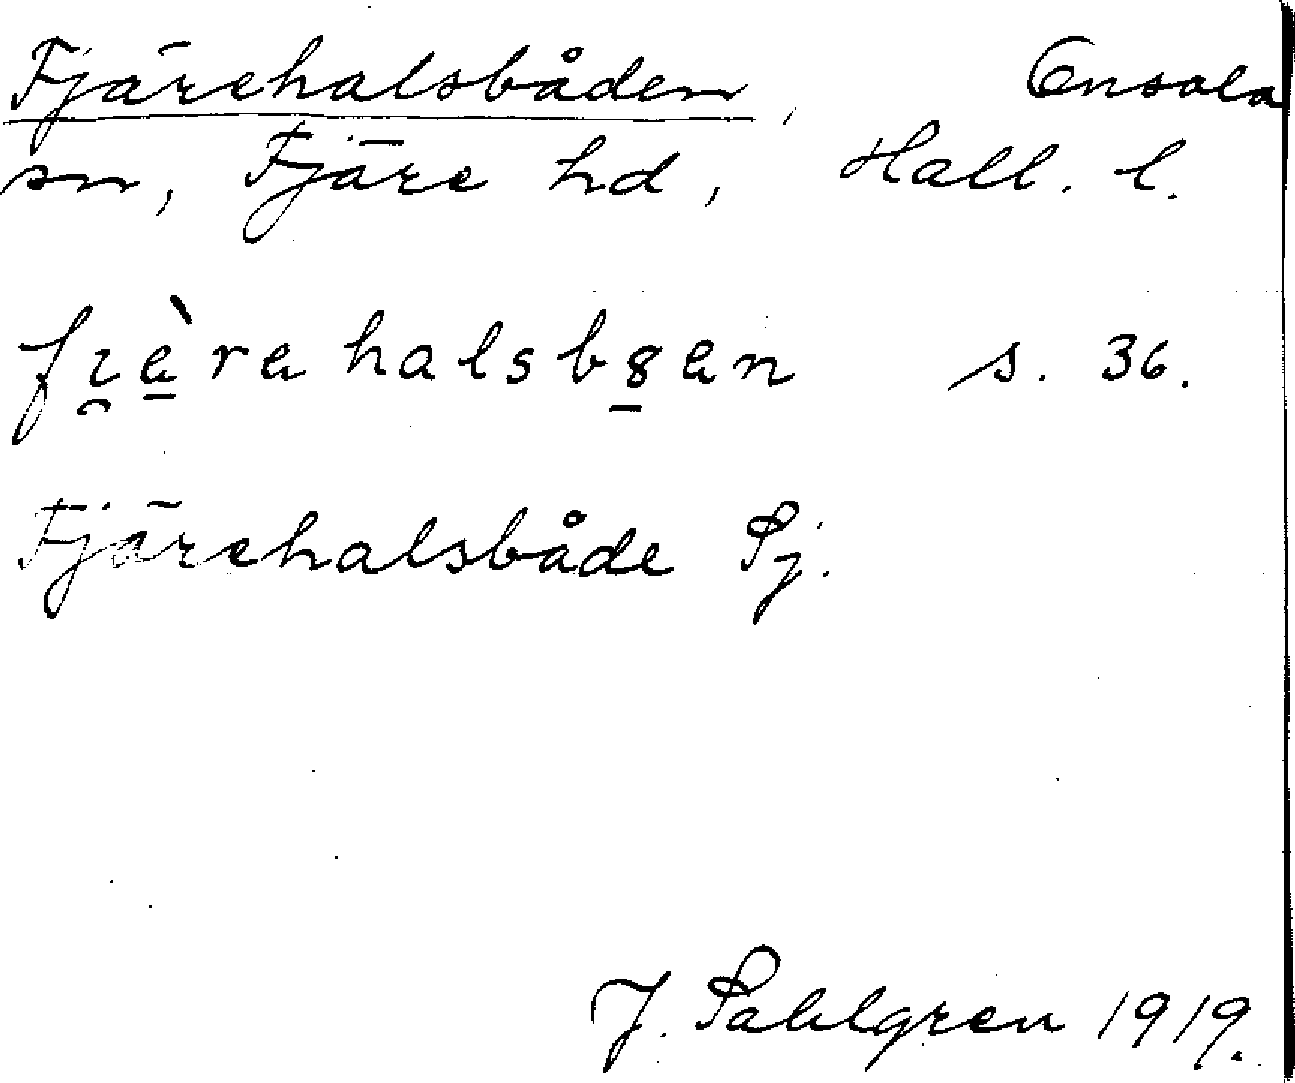 Fjärehalsbåden, Onsala
sn, Fjäre hd, Hall. l.
fı̯æ̀rahalsb8ən s. 36.
Fjärehalsbåde Sj.
J. Sahlgren 1919.